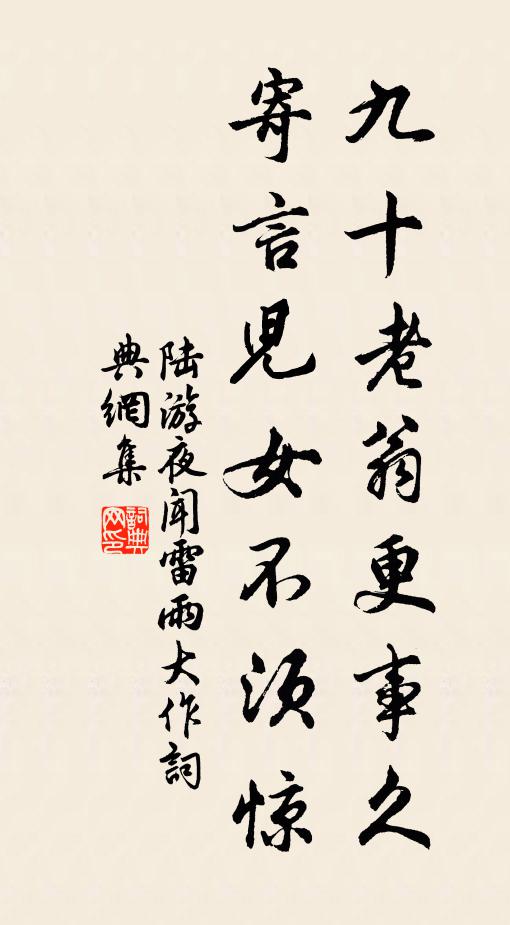 九十老翁更事久
寄言児女不須惊
陆游夜闻雷雨大作詞
典網集
詞典
网印